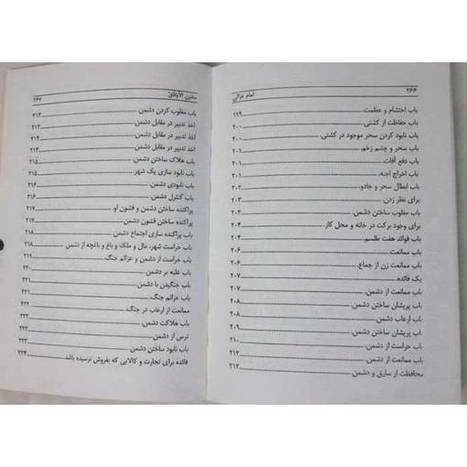 ۲۶۶ امام غزالی
باب احتشام و عظمت ۱۹۹
باب حفاظت از کشتی ۲۰۰
باب نابود کردن سحر موجود در کشتی ۲۰۰
باب سحر و چشم زخم ۲۰۱
باب دفع آفات ۲۰۱
باب اخراج اجنه ۲۰۱
باب ابطال سحر و جادو ۲۰۲
برای نظر زدن ۲۰۳
باب مغلوب ساختن دشمن ۲۰۳
برای وجود برکت در خانه و محل کار ۲۰۴
باب فوائد هفت طلسم ۲۰۴
باب ممانعت ۲۰۶
باب ممانعت زن از جماع ۲۰۶
یک فائده ۲۰۷
باب ممانعت از دشمن ۲۰۷
باب پریشان ساختن دشمن ۲۰۸
باب ارعاب دشمن ۲۰۸
باب پریشان ساختن دشمن ۲۰۹
باب حراست از دشمن ۲۱۰
باب ممانعت از دشمن ۲۱۲
محافظت از سارق و دشمن ۲۱۲
۲۶۷
باب مغلوب کردن دشمن ۲۱۲
اخذ تدبیر در مقابل دشمن ۲۱۳
اخذ تدبیر در مقابل دشمن ۲۱۴
اخذ تدبیر در مقابل دشمن ۲۱۴
باب هلاک ساختن دشمن ۲۱۵
باب نابود سازی یک شهر ۲۱۵
باب نابودی دشمن ۲۱۶
باب کنترل دشمن ۲۱۶
پراکنده ساختن دشمن و قشون او ۲۱۷
پراکنده ساختن قشون دشمن ۲۱۷
باب پراکنده سازی اجتماع دشمن ۲۱۸
باب حراست شهر، مال و ملک و باغ و باغچه از دشمن ۲۱۸
باب حراست از دشمن و عزائم جنگ ۲۱۹
باب غلبه بر دشمن ۲۲۱
باب جنگیدن با دشمن ۲۲۱
باب عزائم جنگ ۲۲۱
ممانعت از ارعاب در جنگ ۲۲۲
باب هلاکت دشمن ۲۲۲
ترس از دشمن ۲۲۳
باب نابود ساختن دشمن ۲۲۳
فائده برای تجارت و کالایی که بفروش نرسیده باشد ۲۲۴